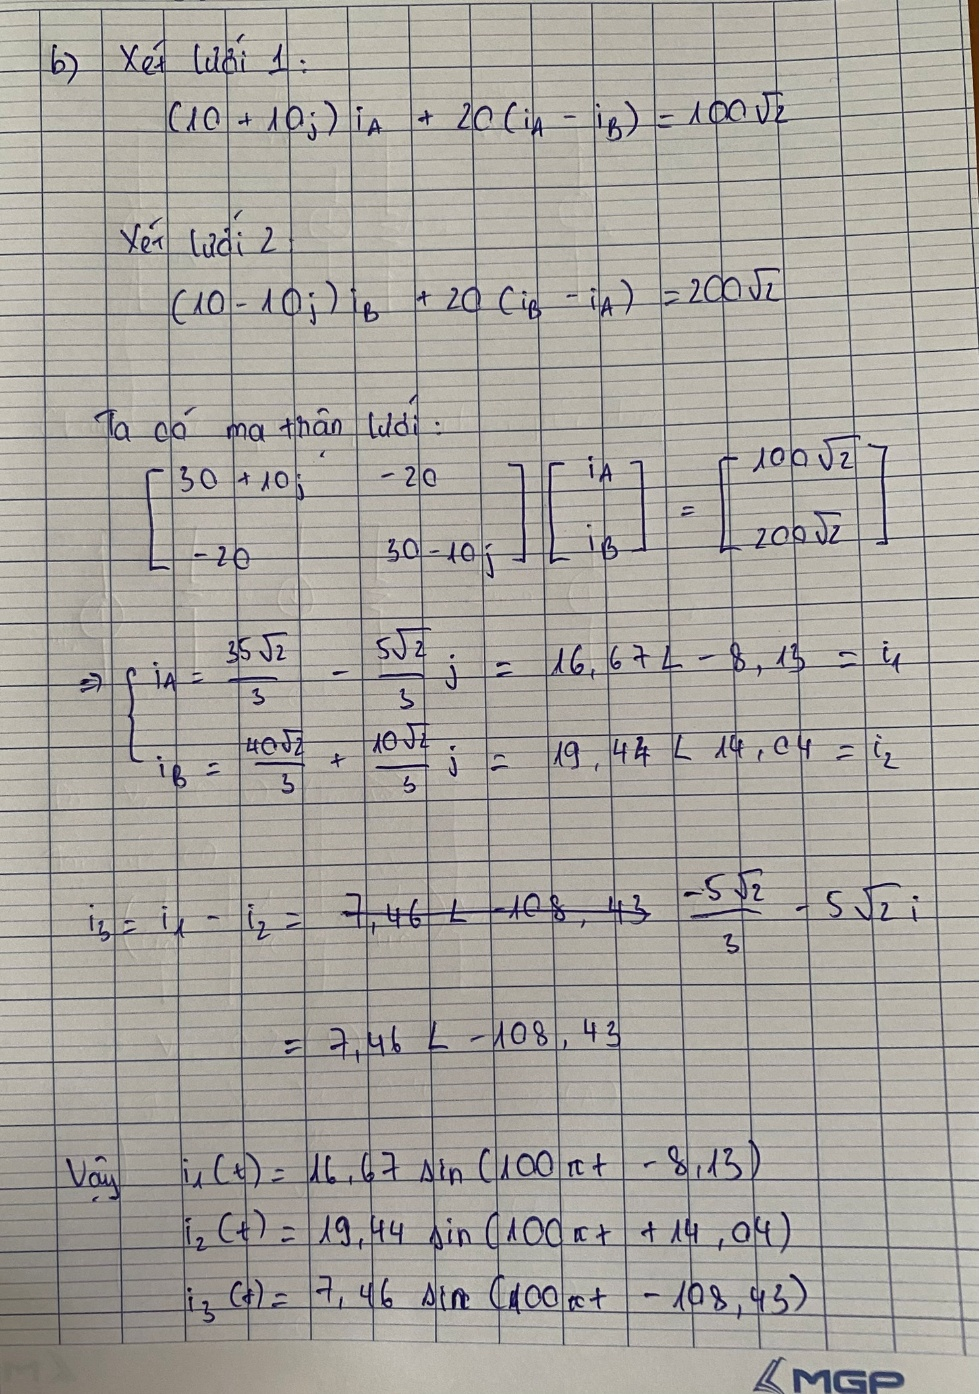 b) Xét lưới 1:
(10 + 10j) iA + 20 (iA - iB) = 100√2
Xét lưới 2
(10 - 10j) iB + 20 (iB - iA) = 200√2
Ta có ma thân lưới:
[30 + 10j -20] [iA] = [100√2]
[-20 30 - 10j] [iB] [200√2]
⇒ { iA = 35√2/3 - 5√2/3 j = 16,67 ∠ -8,13 = i1
iB = 40√2/3 + 10√2/3 j = 19,44 ∠ 14,04 = i2
i3 = i1 - i2 = 7,46 ∠ -108,43 -5√2/3 - 5√2 i
= 7,46 ∠ -108,43
Vậy i1(t) = 16,67 sin(100πt - 8,13)
i2(t) = 19,44 sin(100πt + 14,04)
i3(t) = 7,46 sin(100πt - 108,43)
MGP